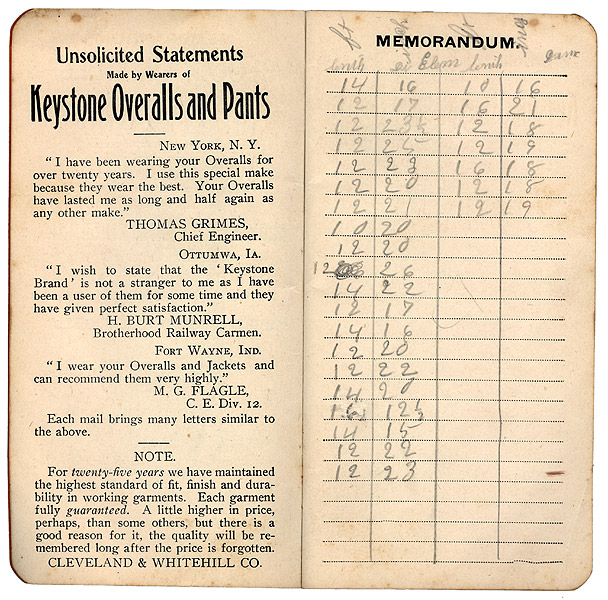 Unsolicited Statements
Made by Wearers of
Keystone Overalls and Pants
New York, N. Y.
“I have been wearing your Overalls for
over twenty years. I use this special make
because they wear the best. Your Overalls
have lasted me as long and half again as
any other make.”
THOMAS GRIMES,
Chief Engineer.
Ottumwa, Ia.
“I wish to state that the ‘Keystone
Brand’ is not a stranger to me as I have
been a user of them for some time and they
have given perfect satisfaction.”
H. BURT MUNRELL,
Brotherhood Railway Carmen.
Fort Wayne, Ind.
“I wear your Overalls and Jackets and
can recommend them very highly.”
M. G. FLAGLE,
C. E. Div. 12.
Each mail brings many letters similar to
the above.
NOTE.
For twenty-five years we have maintained
the highest standard of fit, finish and dura-
bility in working garments. Each garment
fully guaranteed. A little higher in price,
perhaps, than some others, but there is a
good reason for it, the quality will be re-
membered long after the price is forgotten.
CLEVELAND & WHITEHILL CO.
MEMORANDUM.
14 16 10 16
12 17 16 21
12 23½ 12 18
12 25 12 19
12 23 16 18
12 20 12 18
12 21 12 19
10 20
12 20
12 26
14 22
12 17
14 16
12 20
12 22
14 20
12½
14 15
12 22
12 23